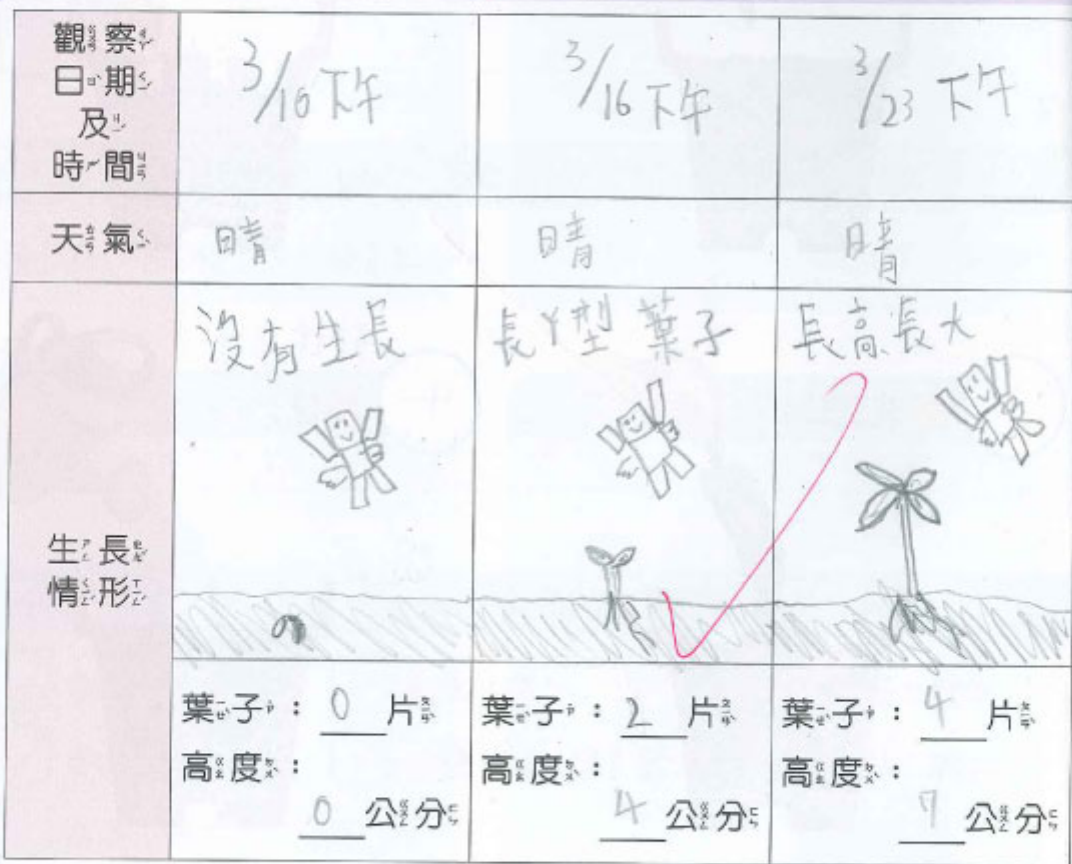 觀察日期及時間
3/10下午
3/16下午
3/23 下午
天氣
晴
晴
晴
生長情形
沒有生長
長Y型 葉子
長高長大
葉子：0 片
高度：
0 公分
葉子：2 片
高度：
4 公分
葉子：4 片
高度：
7 公分